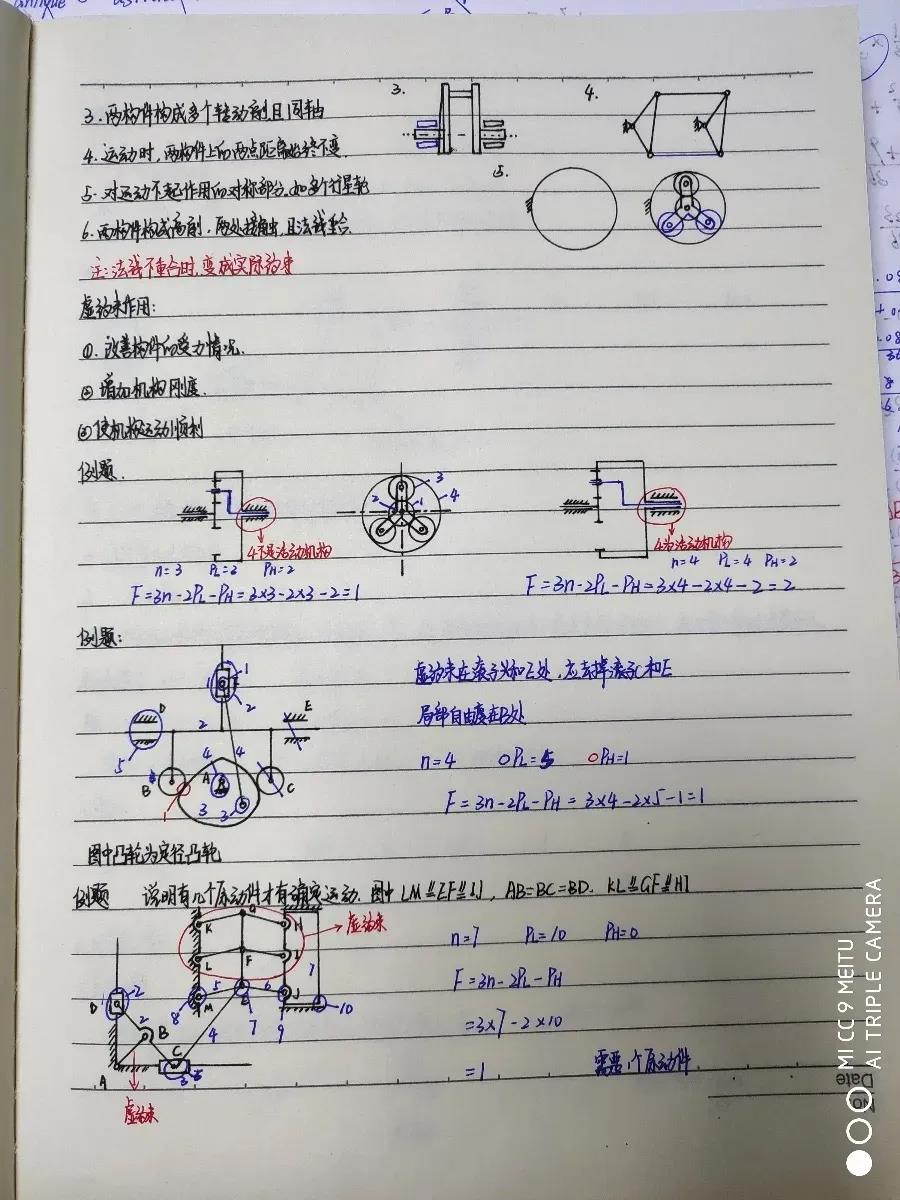 3.
4.
3.两构件构成多个转动副且同轴
4.运动时,两构件上的两点距离始终不变.
5.
5.对运动不起作用的对称部分.如多个行星轮
6.两构件构成高副,两处接触,且法线重合.
注:法线不重合时,变成实际约束
虚约束作用:
①.改善构件的受力情况.
②增加机构刚度.
③使机构运动顺利
例题.
3
4
2
1
4不是活动机构
4为活动机构
n=3 PL=3 PH=2
n=4 PL=4 PH=2
F=3n-2PL-PH=3×3-2×3-2=1
F=3n-2PL-PH=3×4-2×4-2=2
例题:
虚约束在滚子C和E处,应去掉滚子C和E
局部自由度在B处
n=4 PL=5 PH=1
F=3n-2PL-PH=3×4-2×5-1=1
1
1
2
D
2
E
5
4
4
B
A
C
3
3
1
图中凸轮为定径凸轮
例题 说明有几个原动件才有确定运动.图中LM∥EF∥IJ,AB=BC=BD. KL∥GF∥HI
G
K
H
虚约束
L
F
I
7
n=7 PL=10 PH=0
F=3n-2PL-PH
=3×7-2×10
=1 需要1个原动件
D
2
M
5
E
6
J
8
7
9
10
2
B
4
C
A
3
虚约束
No.
Date
MI CC 9 MEITU
AI TRIPLE CAMERA